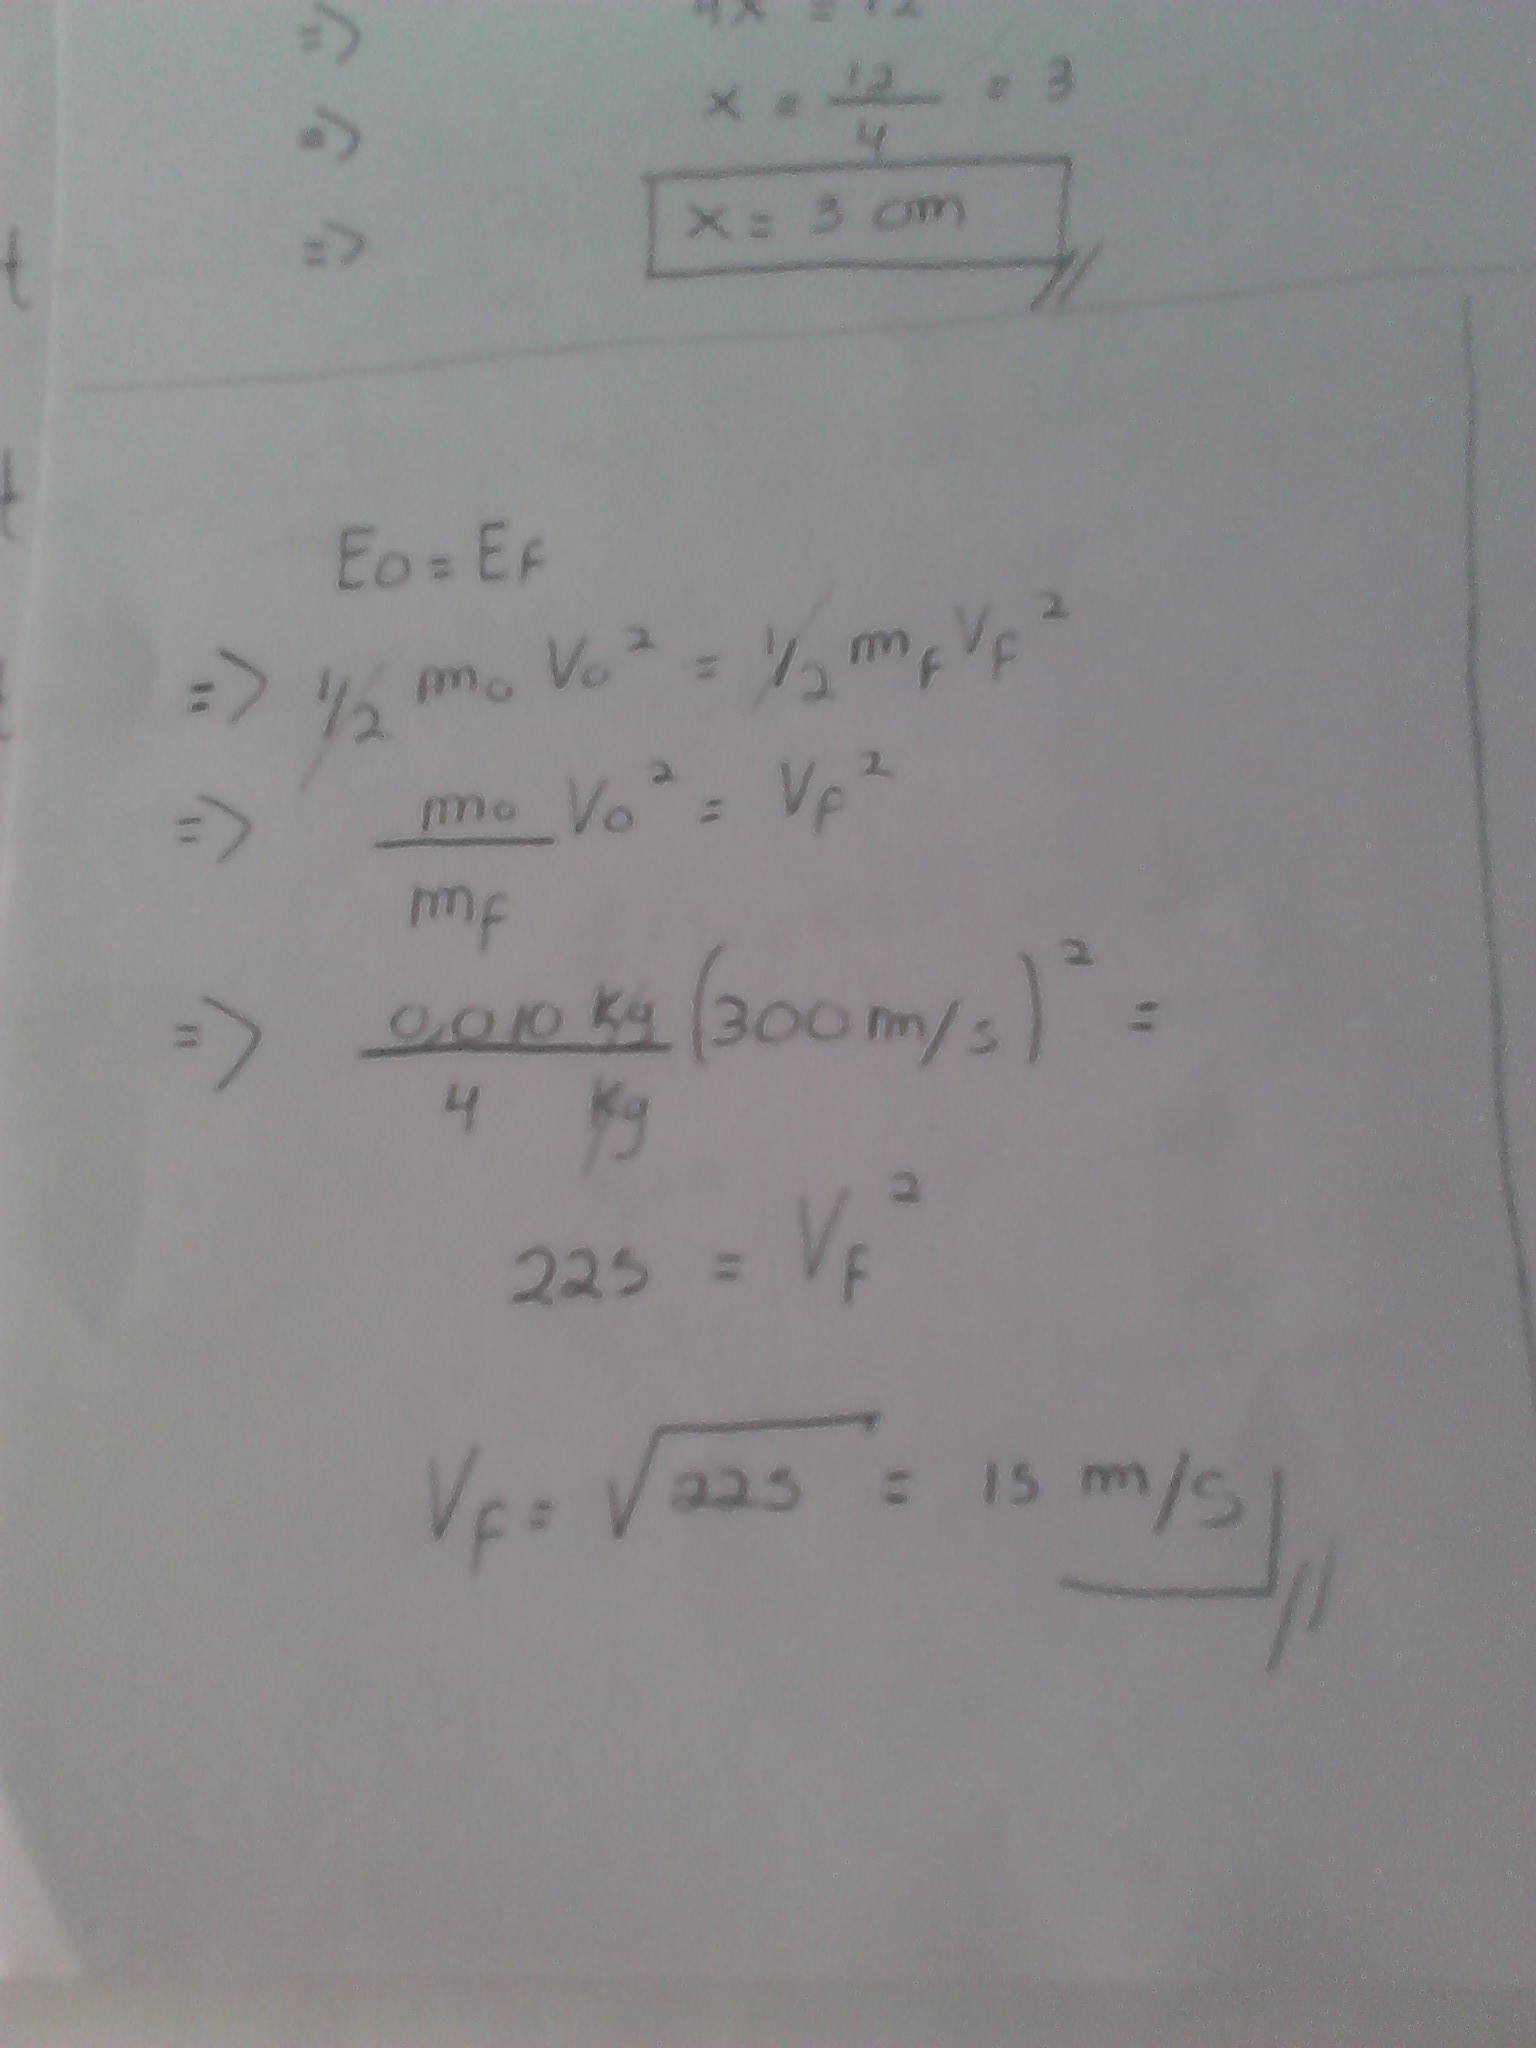 => 4x = 12
=> x = 12/4 = 3
=> x = 3 cm
t
t
E0 = EF
=> 1/2 m0 V0² = 1/2 mF VF²
=> m0/mF V0² = VF²
=> 0,010 Kg/4 Kg (300 m/s)² =
225 = VF²
VF = √225 = 15 m/s